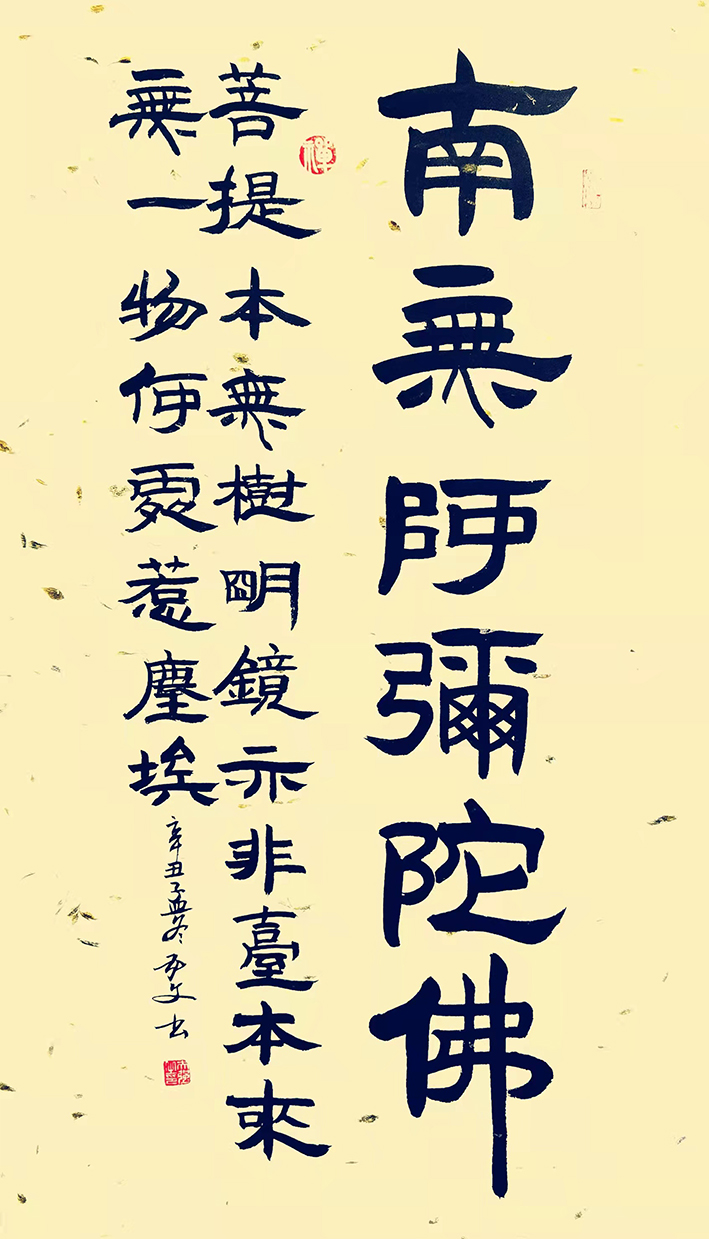 南無阿彌陀佛
禪
菩提本無樹明鏡亦非臺本來
無一物何處惹塵埃
辛丑孟冬 文书